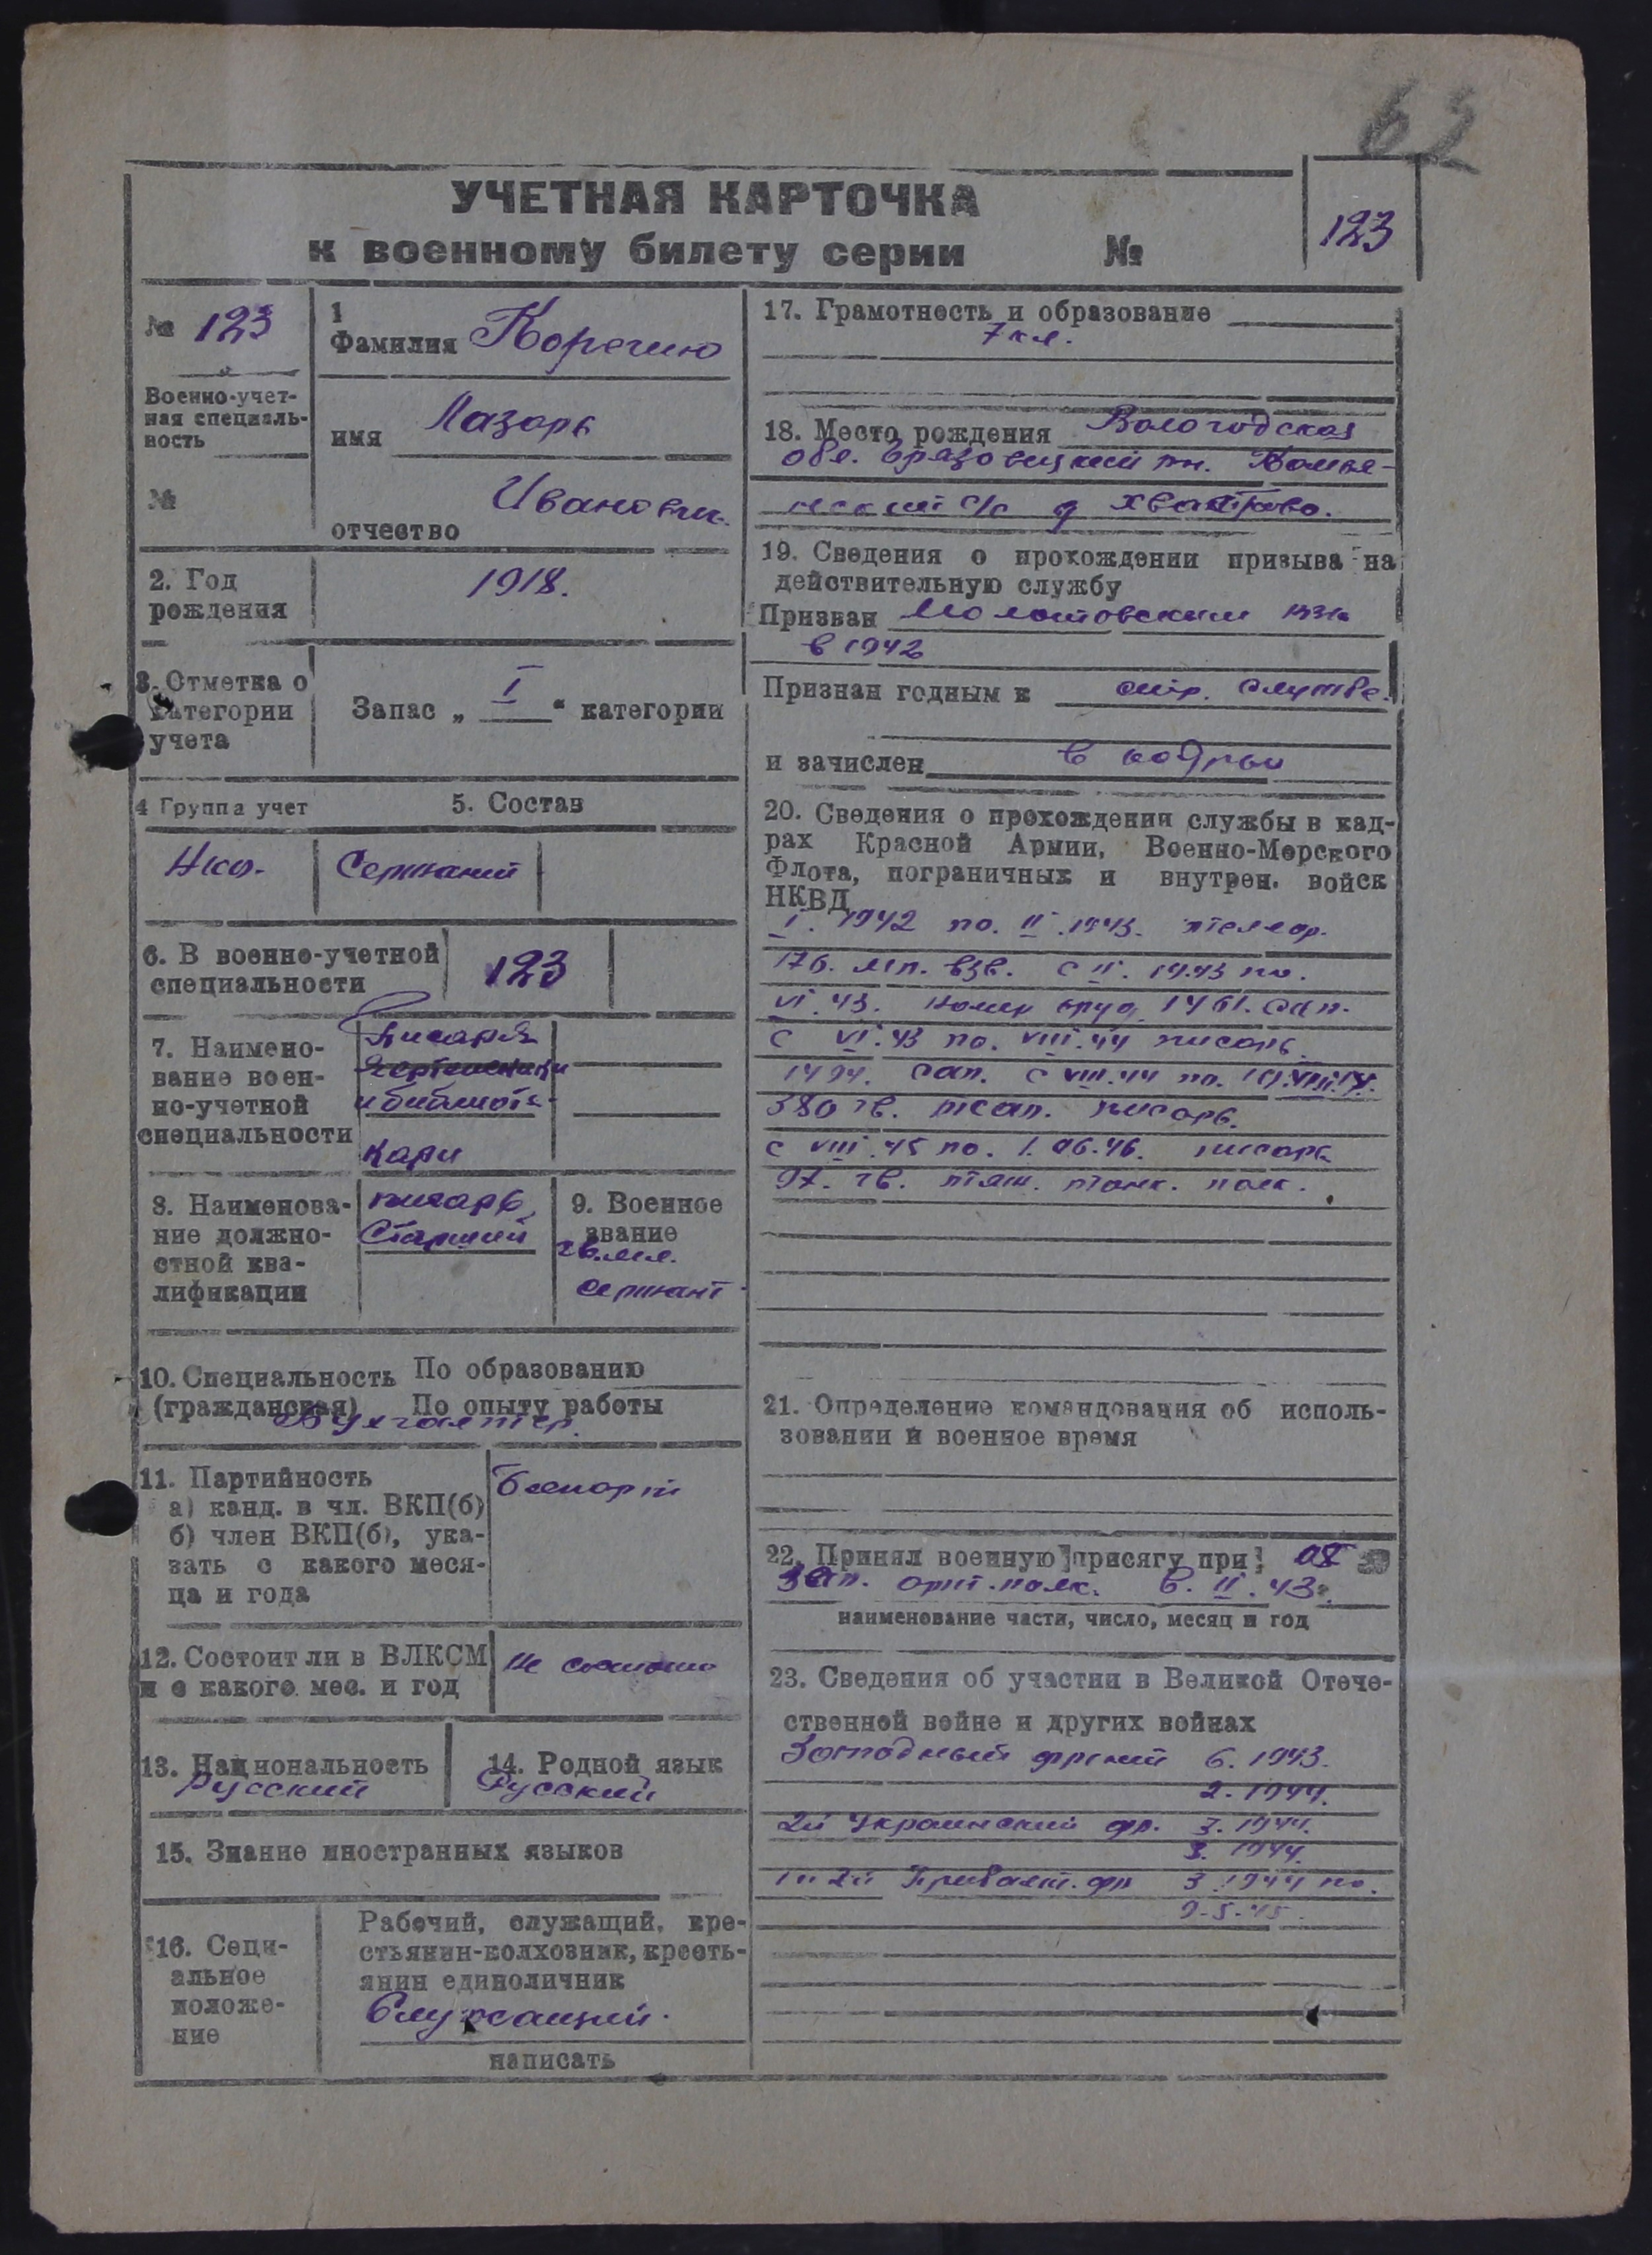 62
УЧЕТНАЯ КАРТОЧКА
к военному билету серии №
123
№ 123
Военно-учет-
ная специаль-
ность
№
1
Фамилия
имя Лазарь
Иванович
отчество
2. Год
рождения
1918.
3. Отметка о
категории
учета
Запас „ I “ категории
4 Группа учет
5. Состав
Сержант
6. В военно-учетной
специальности
123
7. Наимено-
вание воен-
но-учетной
специальности
Писаря
чертежники
и библиоте-
кари
8. Наименова-
ние должно-
стной ква-
лификации
писарь
Старший
9. Военное
звание
гв. мл.
сержант
10. Специальность По образованию
(гражданская) По опыту работы
Бухгалтер.
11. Партийность
а) канд. в чл. ВКП(б)
б) член ВКП(б), ука-
зать с какого меся-
ца и года
Беспарт
12. Состоит ли в ВЛКСМ
и с какого мес. и год
не состоит
13. Национальность
Русский
14. Родной язык
Русский
15. Знание иностранных языков
16. Соци-
альное
положе-
ние
Рабочий, служащий, кре-
стьянин-колхозник, кресть-
янин единоличник
Служащий.
написать
17. Грамотность и образование
7 кл.
18. Место рождения Вологодская
обл. Грязовецкий рн.
с/с д
19. Сведения о прохождении призыва на
действительную службу
Призван Молотовским РВК
в 1942
Признан годным к стр. службе.
и зачислен в кадры
20. Сведения о прохождении службы в кад-
рах Красной Армии, Военно-Морского
Флота, пограничных и внутрен. войск
НКВД
I. 1942 по. II. 1943. телеф.
176. взв. с II. 1943 по.
VI. 43. номер оруд. 1461. сап.
с VI. 43 по. VIII. 44 писарь.
1494. сап. с VIII. 44 по.
380 гв. тсап. писарь.
с VIII. 45 по. 1. 06. 46. писарь
97. гв. тяж. танк. полк.
21. Определение командования об исполь-
зовании в военное время
22. Принял военную присягу при
зап. арт. полк. в. II. 43.
наименование части, число, месяц и год
23. Сведения об участии в Великой Отече-
ственной войне и других войнах
Западный фронт 6. 1943.
2. 1944.
2й Украинский фр. 3. 1944.
3. 1944.
1 и 2й Прибалт. фр 3. 1944 по.
9-5-45.